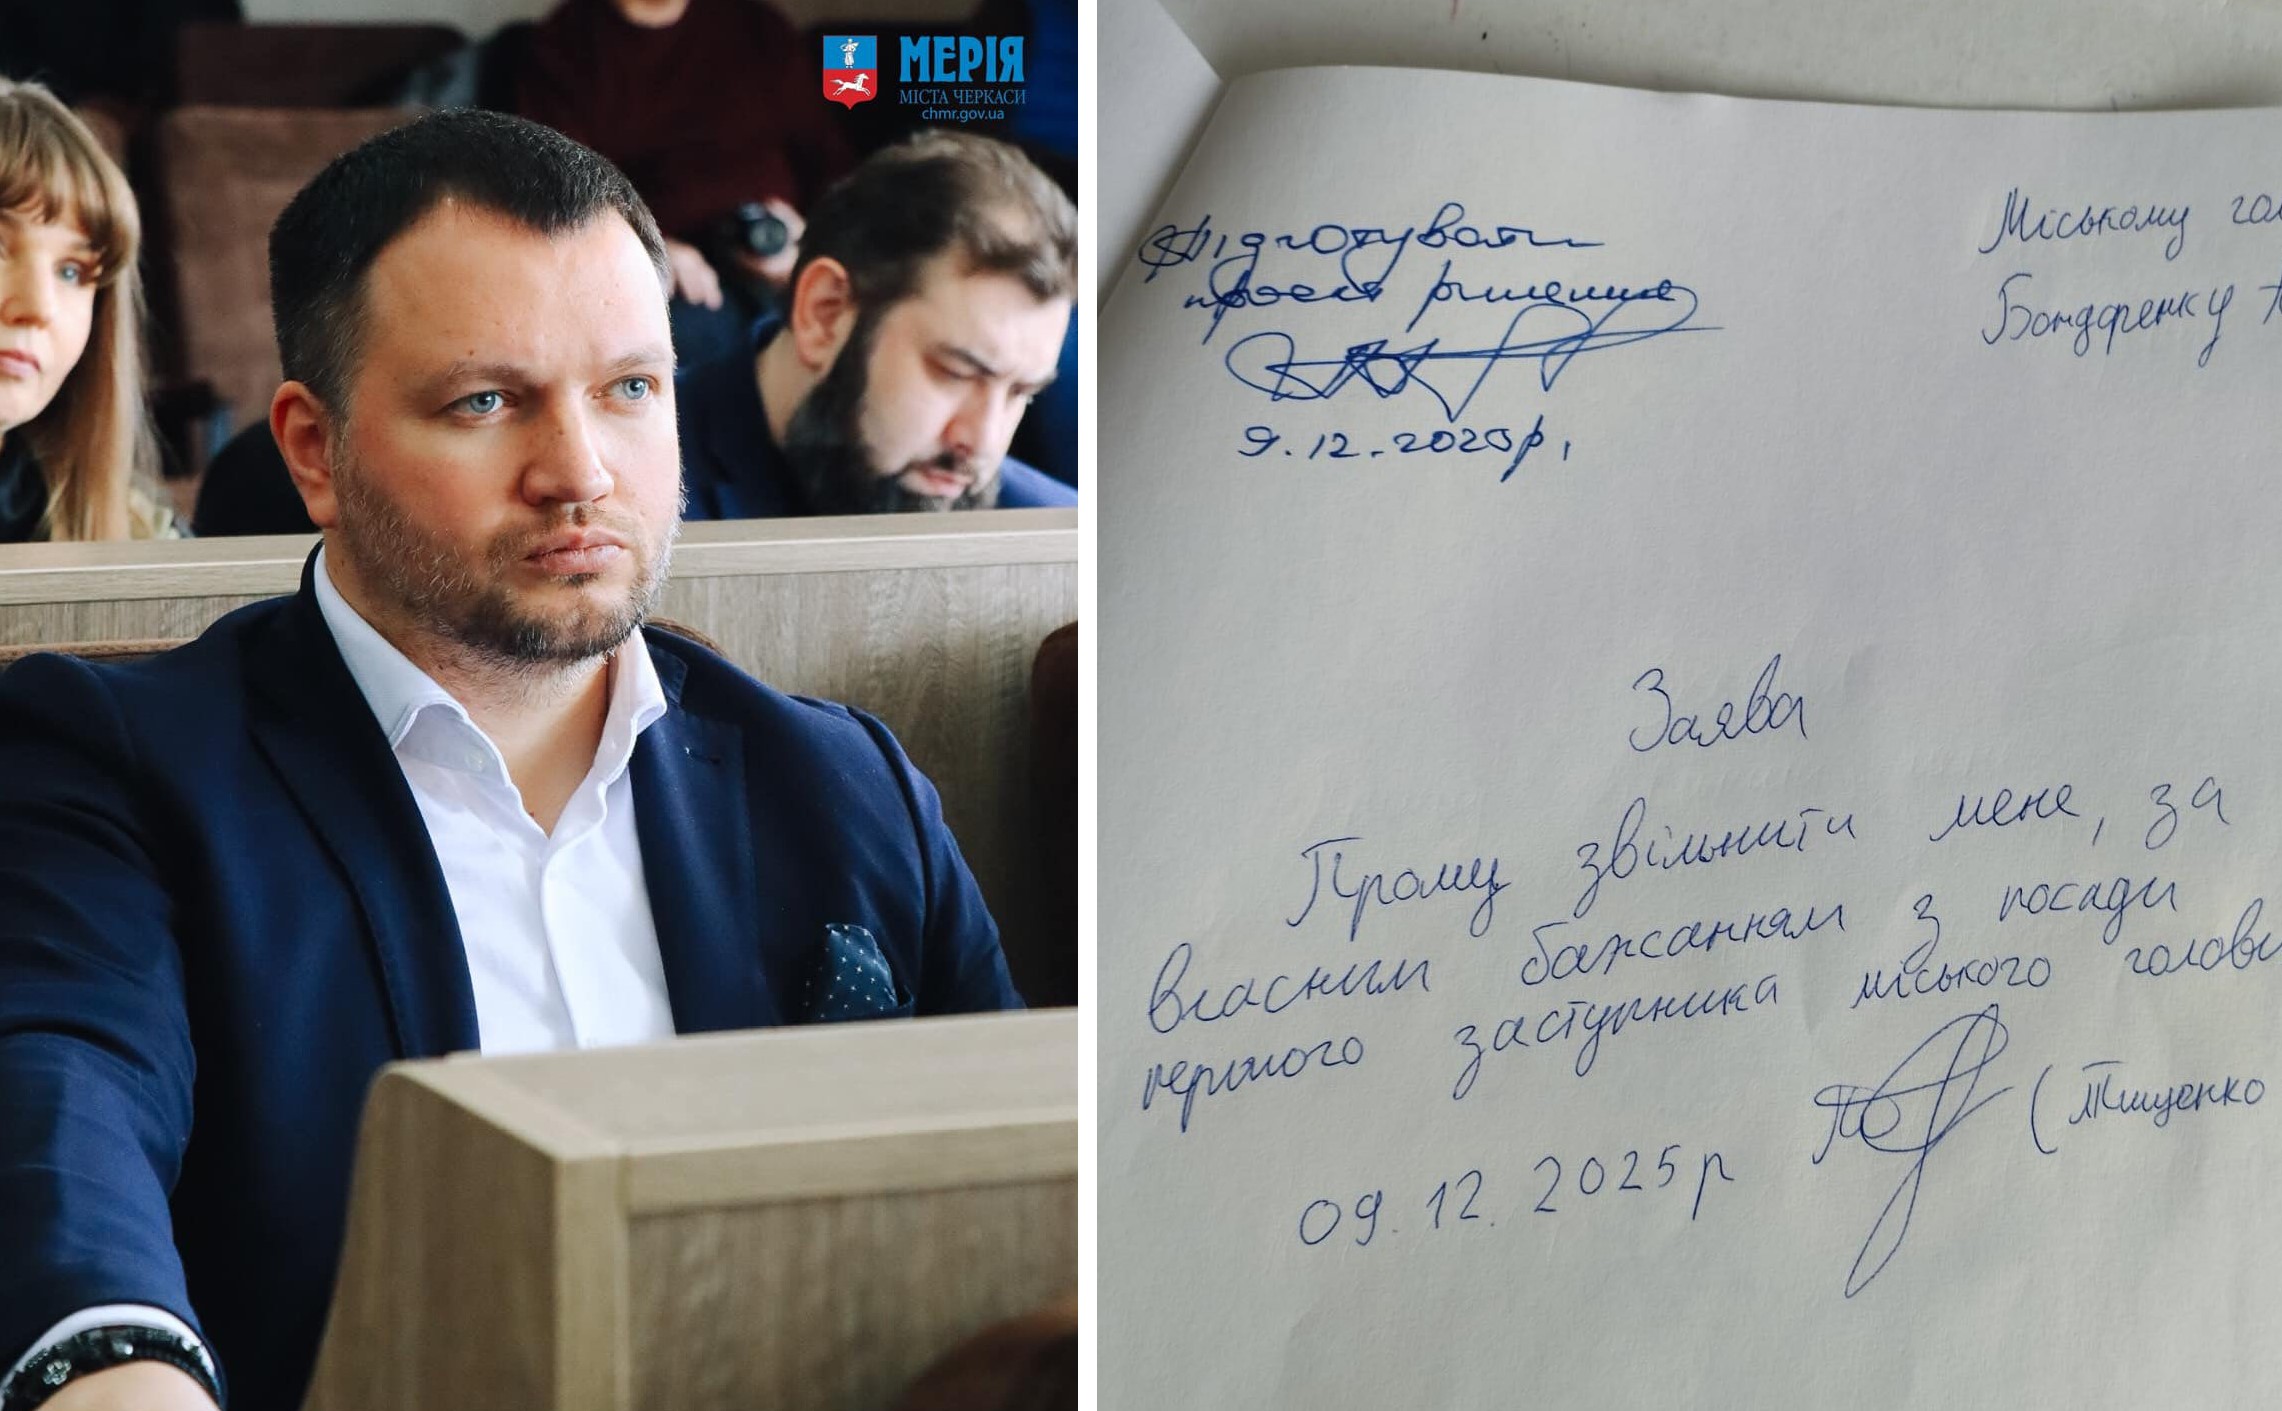 МЕРІЯ
МІСТА ЧЕРКАСИ
chmr.gov.ua
Підготувати
проєкт рішення
9.12.2025р.
Міському гол
Бондаренку А
Заява
Прошу звільнити мене, за
власним бажанням з посади
першого заступника міського голови
(Тищенко
09.12.2025р